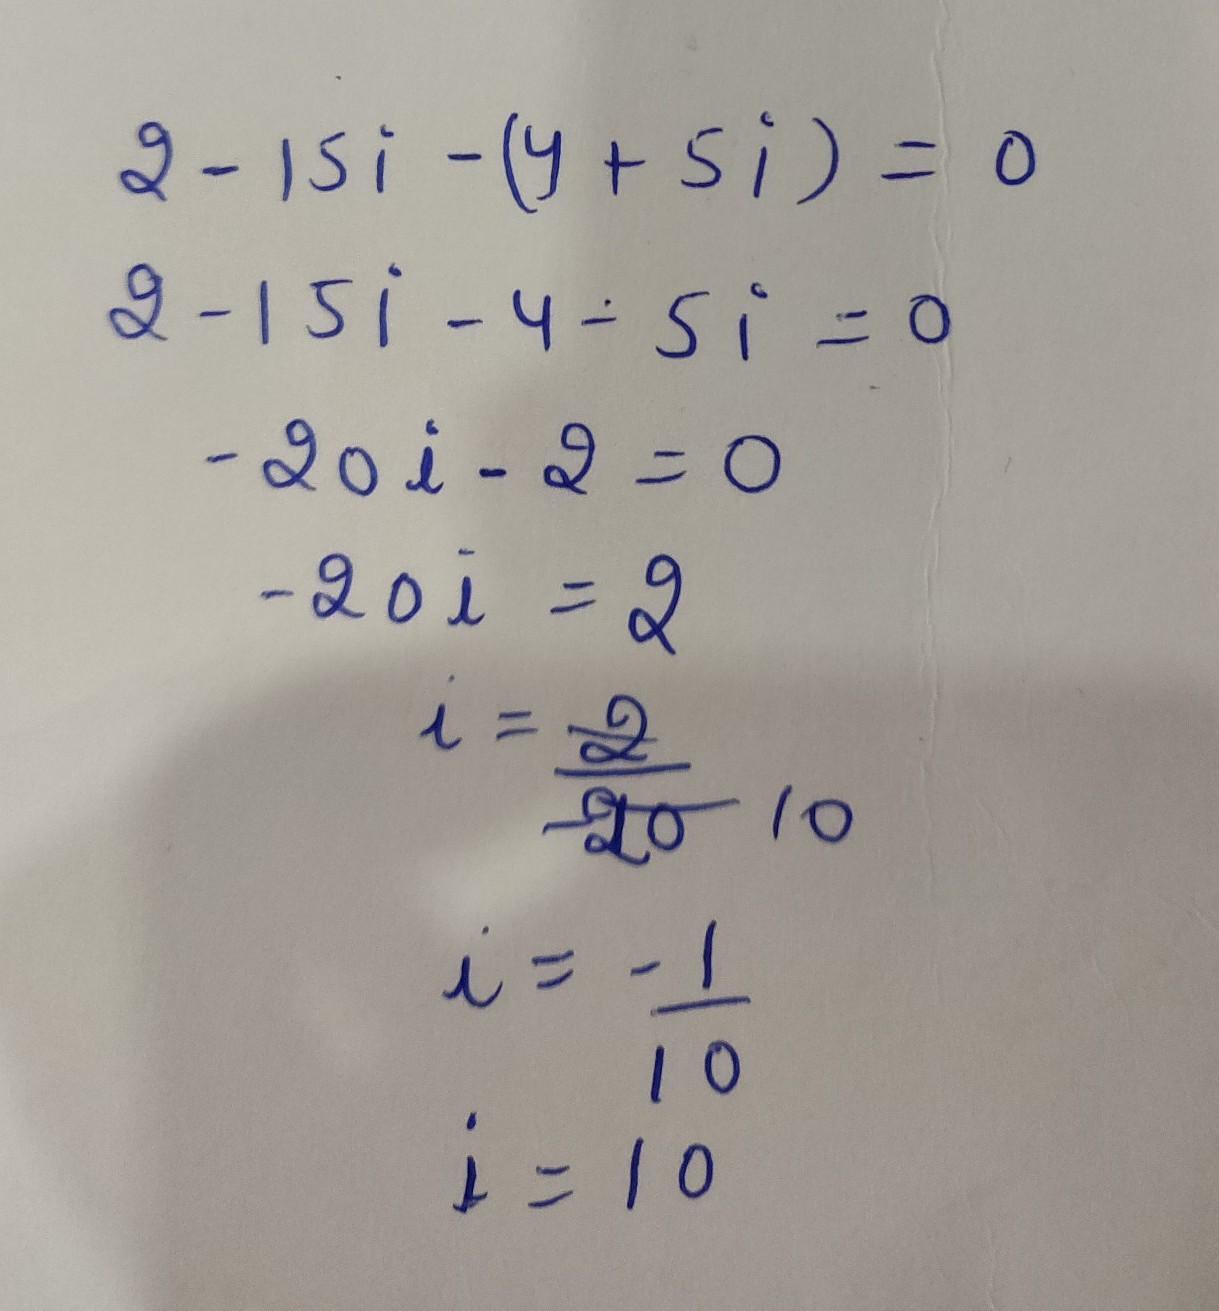 2 - 15i - (4 + 5i) = 0
2 - 15i - 4 - 5i = 0
-20i - 2 = 0
-20i = 2
i = 2
-20 10
i = -1
10
i = 10